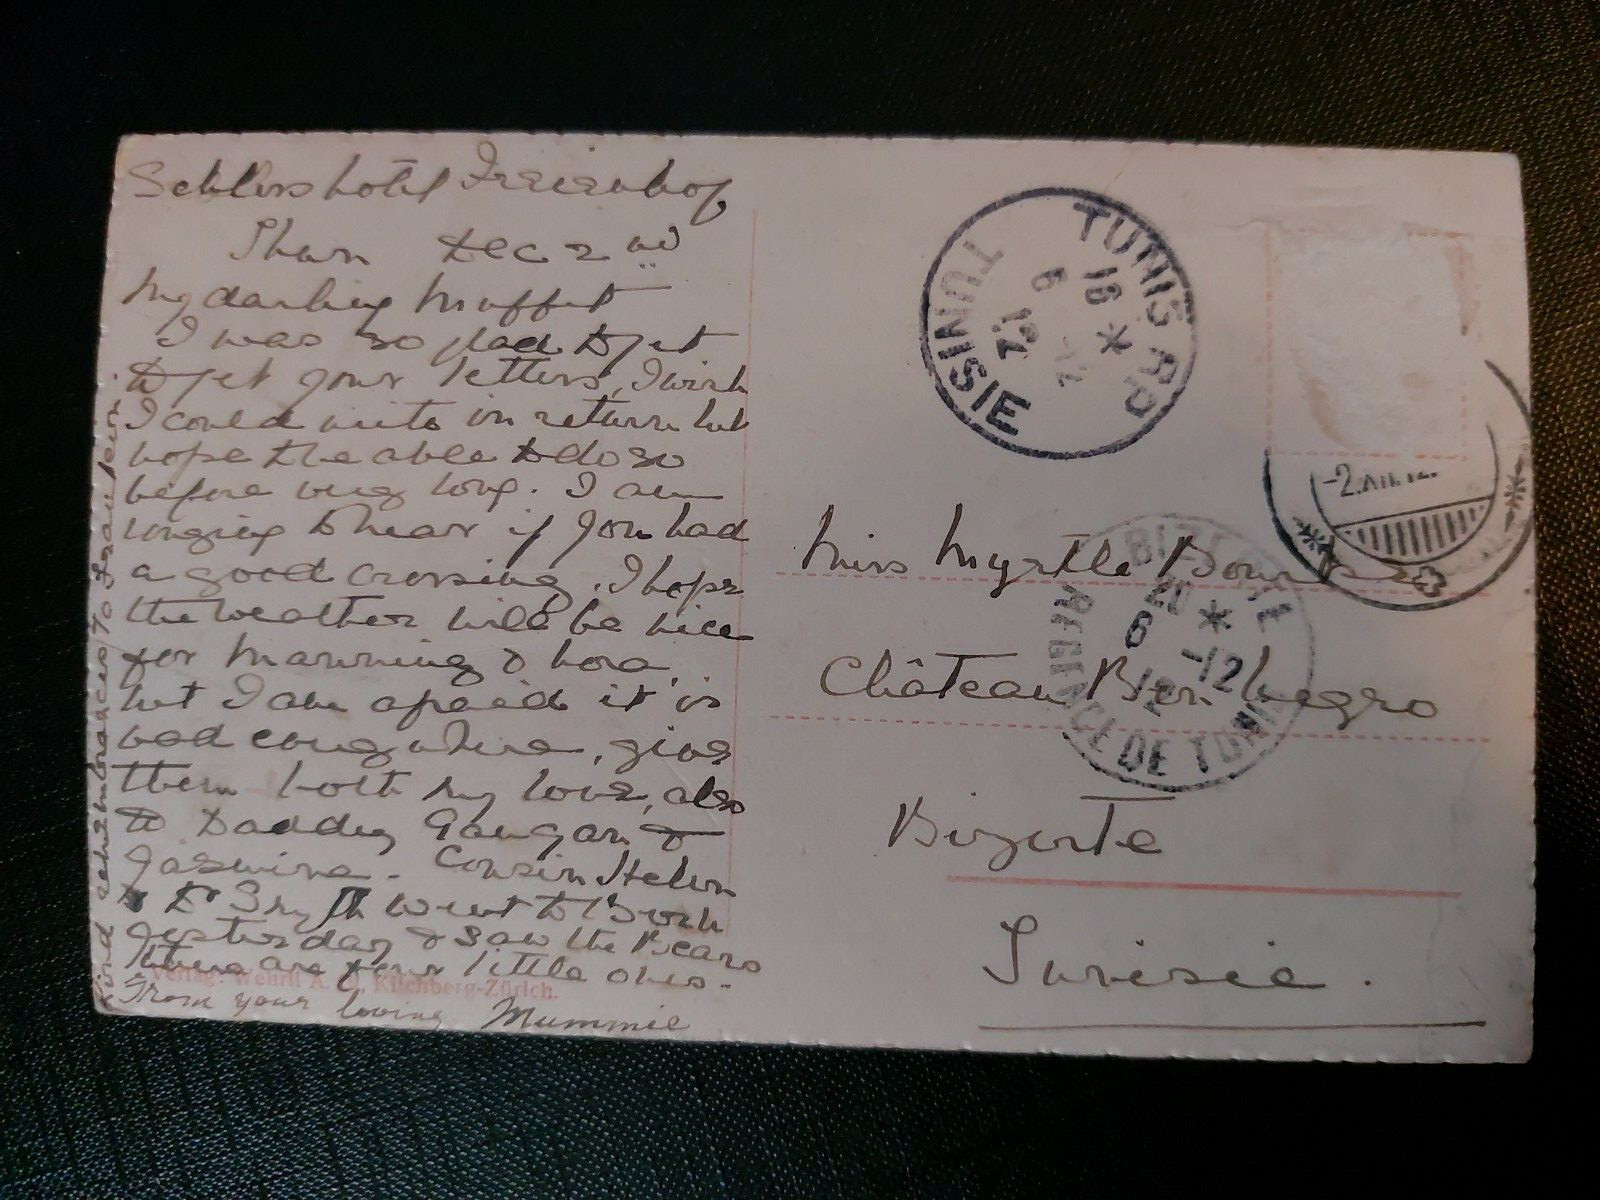 Schloss hotel Freienhof
Thun Dec 2nd
My darling Muffet
I was so glad to get
to get your letters, I wish
I could write in return but
hope to be able to do so
before very long. I am
longing to hear if you had
a good crossing. I hope
the weather will be nice
for Manning &
but I am afraid it is
bad everywhere, give
them both my love, also
to Daddy Gangan &
Jasmine - Cousin Helen
& Dr Smyth went to Bern
yesterday & saw the Bears
there are four little ones.
From your loving Mummie
Kind
embraces to Fraulein.
Verlag. Wehrli A. G. Kilchberg-Zürich.
TUNIS RP
16 *
6 -12
12
TUNISIE
-2.XII.12.
Miss Myrtle
Château Ben Negro
Bizerte
Tunisie.
BIZERTE
20 *
6 -12
12
REGENCE DE TUNIS